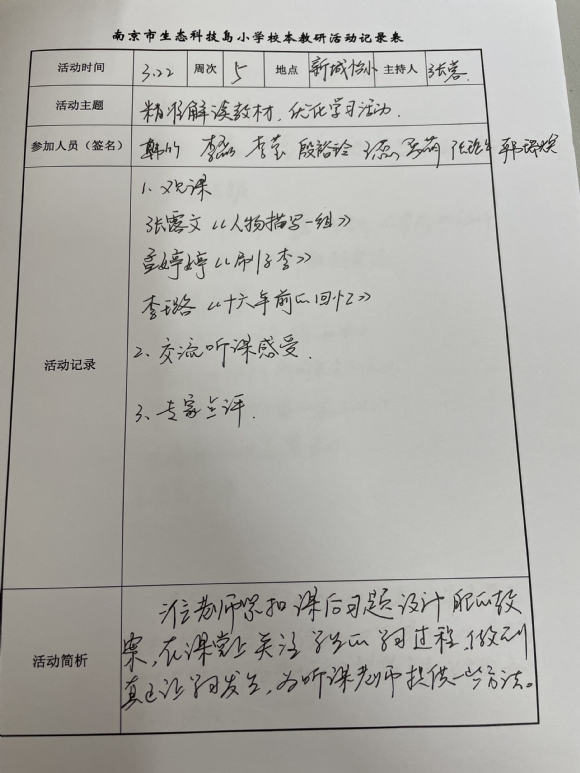 南京市生态科技岛小学校本教研活动记录表
活动时间 3.22 周次 5 地点 新城怡小 主持人 张蓉
活动主题 精准解读教材，优化学习活动.
参加人员（签名） 李磊 李莹 殷裕玲
活动记录
1. 观课
张露文《人物描写一组》
孟婷婷《刷子李》
李璐《十六年前的回忆》
2. 交流听课感受.
3. 专家点评.
活动简析
老师紧扣课后习题设计教
案，在课堂上关注学生的学习过程，做到
真正让学习发生，为听课老师提供一些方法。